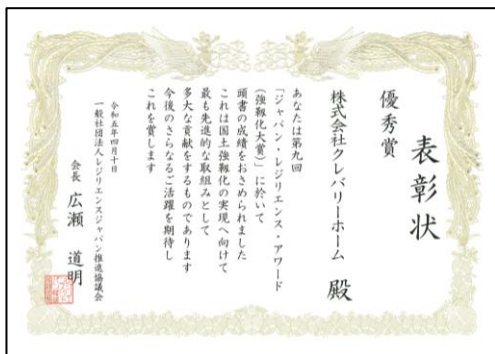 表彰状
優秀賞
株式会社クレバリーホーム 殿
あなたは第九回
「ジャパン・レジリエンス・アワード
(強靱化大賞)」に於いて
頭書の成績をおさめられました
これは国土強靱化の実現へ向けて
最も先進的な取組みとして
多大な貢献をするものであります
今後のさらなるご活躍を期待し
これを賞します
令和五年四月十日
一般社団法人レジリエンスジャパン推進協議会
会長 広瀬 道明